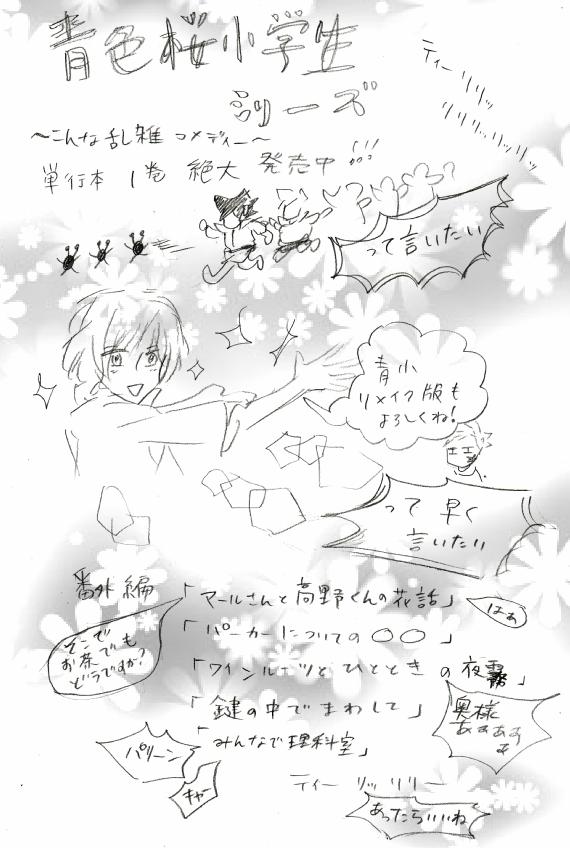 青色桜小学生
シリーズ
ティーリリッ
リリリッリリッリッ
～こんな乱雑コメディー～
単行本 1巻 絶大 発売中!!!
って言いたい
青小
リメイク版も
よろしくね!
って早く
言いたい
番外編
「マールさんと高野くんの花話」
はぁ
「パーカーについての〇〇」
そこで
お茶でも
どうですか?
「ワインルーツとひとときの夜霧」
「鍵の中でまわして」
奥様
ああああ
あ
「みんなで理科室」
パリーン
キャー
ティーリッリリー
あったらいいね